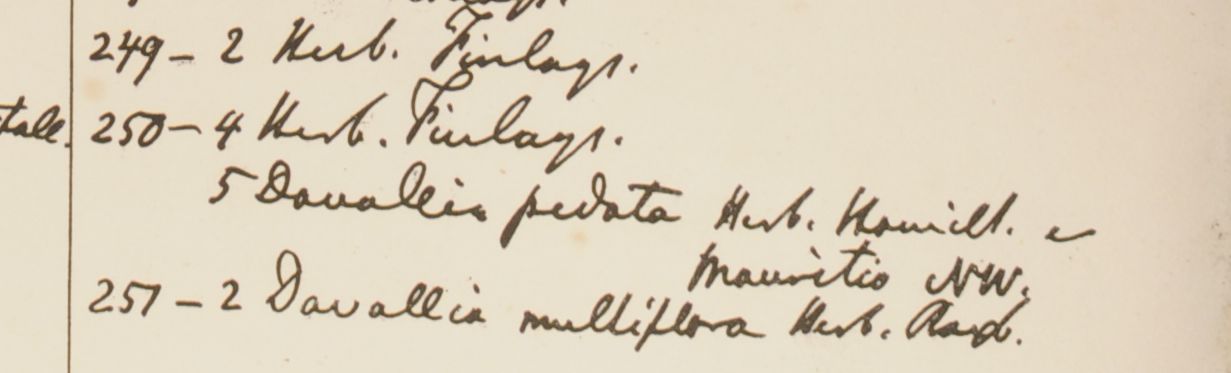 249 – 2 Herb. Finlays.
tall. 250 – 4 Herb. Finlays.
5 Davallia pedata Herb. Hamilt. e
Mauritio NW.
251 – 2 Davallia multiflora Herb. Roxb.